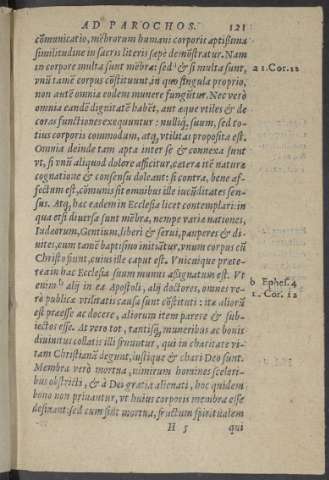 AD PAROCHOS. 121
cōmunicatio, mēbrorum humani corporis aptißima
similitudine in sacris literis sæpe demōstratur. Nam
in corpore multa sunt mēbra: sed & si multa sunt, a 1. Cor. 12
vnū tamē corpus cōstituunt, in quo singula proprio,
non autē omnia eodem munere fungūtur. Nec verò
omnia eandē dignitatē habēt, aut æque vtiles & de
coras functiones exequuntur: nulliq́; suum, sed to-
tius corporis commodum, atq; vtilitas proposita est.
Omnia deinde tam apta inter se & connexa sunt
vt, si vnū aliquod dolore afficitur, cætera itē naturæ
cognatione & consensu doleant: si contra, bene af-
fectum est, cōmunis sit omnibus ille iucūditatis sen-
sus. Atq; hæc eadem in Ecclesia licet contemplari: in
qua etsi diuersa sunt mēbra, nempe variæ nationes,
Iudæorum, Gentium, liberi & serui, pauperes & di-
uites, cum tamē baptismo initiātur, vnum corpus cū
Christo fiunt, cuius ille caput est. Vnicuique præte-
rea in hac Ecclesia suum munus aßignatum est. Vt
enim b alij in ea Apostoli, alij doctores, omnes ve- b Ephes. 4
rò publicæ vtilitatis causa sunt cōstituti: ita aliorū 1. Cor. 12
est præesse ac docere, aliorum item parere & sub-
iectos esse. At vero tot, tantisq́; muneribus ac bonis
diuinitus collatis illi fruuntur, qui in charitate vi-
tam Christianā degunt, iustique & chari Deo sunt.
Membra verò mortua, nimirum homines sceleri-
bus obstricti, & à Dei gratia alienati, hoc quidem
bono non priuantur, vt huius corporis membra esse
desinant: sed cum sint mortua, fructum spiritualem
H 5 qui